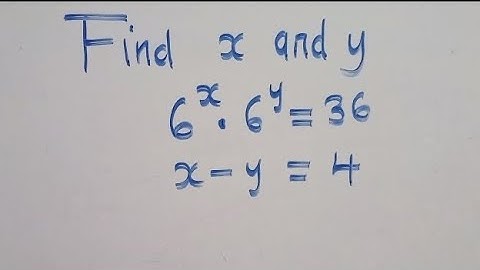 Find x and y
6ˣ · 6ʸ = 36
x - y = 4